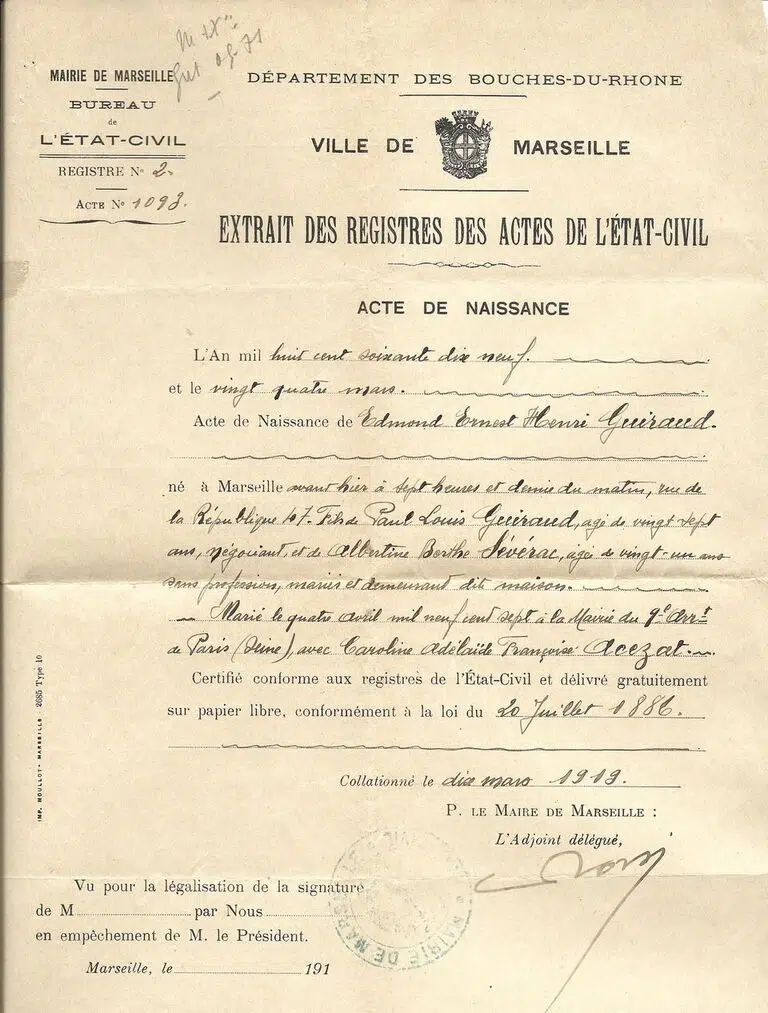 MAIRIE DE MARSEILLE
BUREAU
de
L'ÉTAT-CIVIL
REGISTRE N° 2.
ACTE N° 1093.
DÉPARTEMENT DES BOUCHES-DU-RHONE
VILLE DE MARSEILLE
EXTRAIT DES REGISTRES DES ACTES DE L'ÉTAT-CIVIL
ACTE DE NAISSANCE
L'An mil huit cent soixante dix neuf.
et le vingt quatre mars.
Acte de Naissance de Edmond Ernest Henri Guiraud.
né à Marseille avant hier à sept heures et demie du matin, rue de
la République 47. Fils de Paul Louis Guiraud, agé de vingt sept
ans, négociant, et de Albertine Berthe Sévérac, agée de vingt-un ans
sans profession, mariés et demeurant dite maison.
Marié le quatre avril mil neuf cent sept à la Mairie du 9e Arrt
de Paris (Seine), avec Caroline Adélaïde Françoise Acezat.
Certifié conforme aux registres de l'État-Civil et délivré gratuitement
sur papier libre, conformément à la loi du 20 Juillet 1886.
Collationné le dix mars 1919.
P. LE MAIRE DE MARSEILLE :
L'Adjoint délégué,
MAIRIE DE MARS
Vu pour la légalisation de la signature
de M par Nous
en empêchement de M. le Président.
Marseille, le 191
IMP. MOULLOT - MARSEILLE. 2685 Type 10